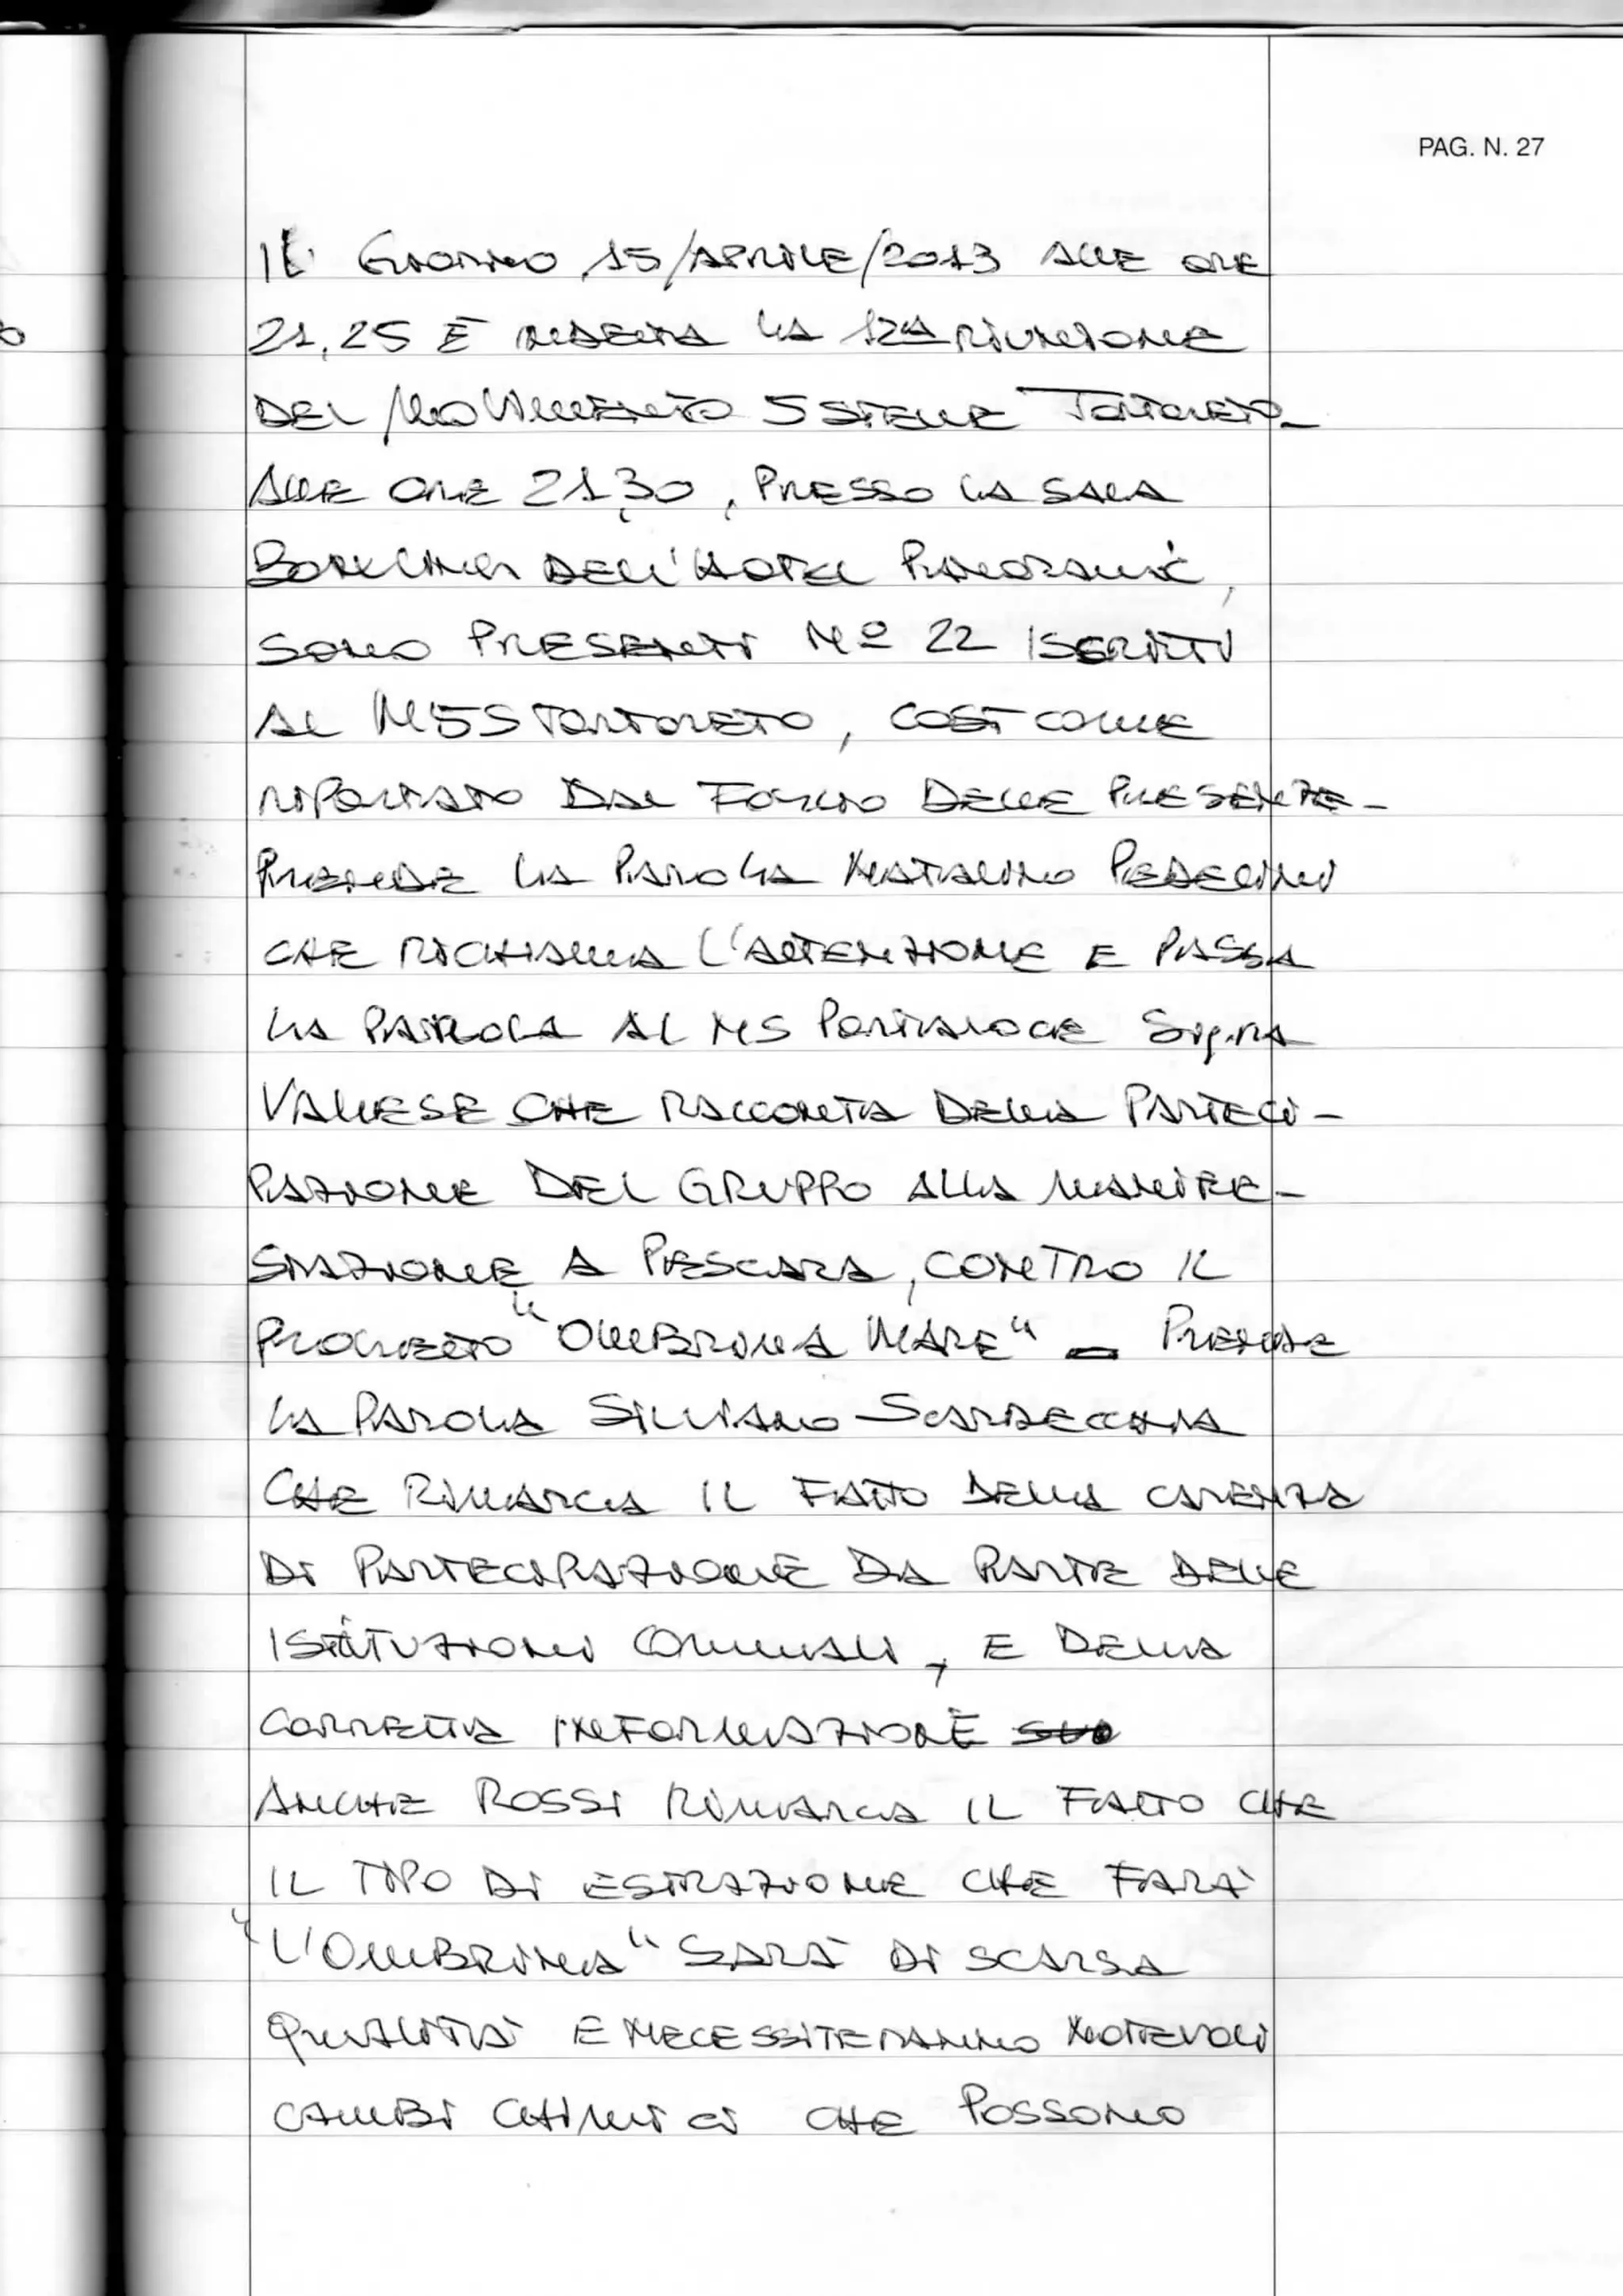 PAG. N. 27
Il GIORNO 15/APRILE/2013 ALLE ORE
21,25 È INDETTA LA 12ª RIUNIONE
DEL MOVIMENTO 5 STELLE TORTORETO_
ALLE ORE 21,30, PRESSO LA SALA
DELL'HOTEL PANORAMIC,
SONO PRESENTI Nº 22 ISCRITTI
AL M5S TORTORETO, COSÌ COME
RIPORTATO DAL FOGLIO DELLE PRESENZE_
PRENDE LA PAROLA NATALINO PEDECINI
CHE RICHIAMA L'ATTENZIONE E PASSA
LA PAROLA AL NS PORTAVOCE Sig.RA
VALLESE CHE RACCONTA DELLA PARTECI-
PAZIONE DEL GRUPPO ALLA MANIFE-
STAZIONE A PESCARA, CONTRO IL
PROGETTO "OMBRINA MARE" _ PRENDE
LA PAROLA SILVIANO SCARDECCHIA
CHE RIMARCA IL FATTO DELLA CARENZA
DI PARTECIPAZIONE DA PARTE DELLE
ISTITUZIONI COMUNALI, E DELLA
CORRETTA INFORMAZIONE
ANCHE ROSSI RIMARCA IL FATTO CHE
IL TIPO DI ESTRAZIONE CHE FARÀ
"L'OMBRINA" SARÀ DI SCARSA
QUALITÀ E NECESSITERANNO NOTEVOLI
CAMBI CHIMICI CHE POSSONO